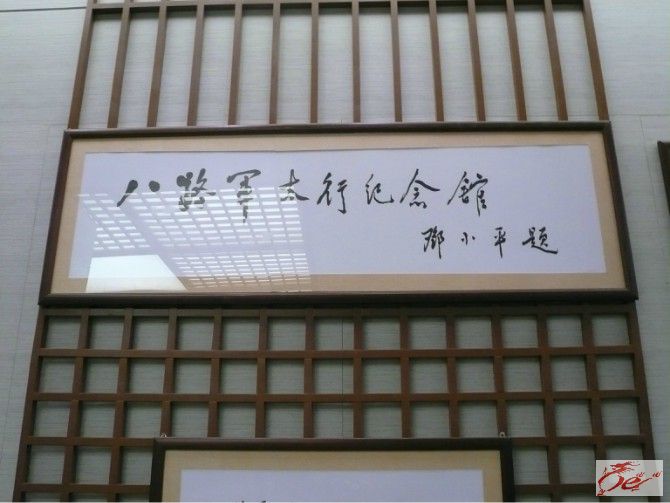 八路軍太行纪念館
邓小平题